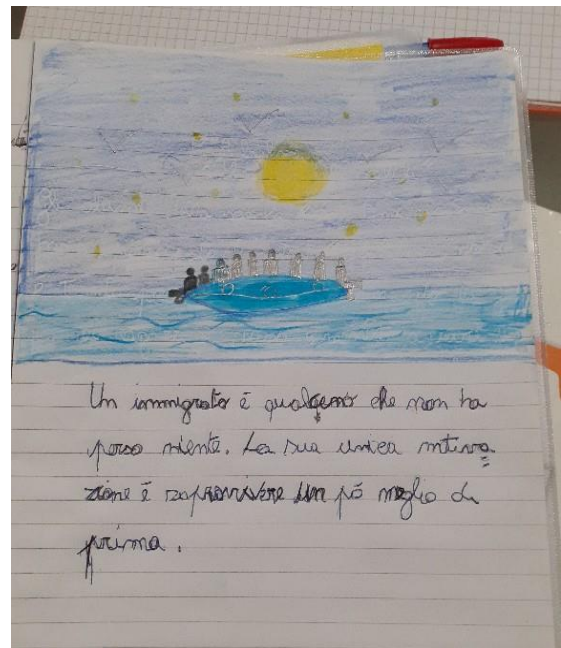 Un immigrato é qualcuno che non ha
perso niente. La sua unica motiva
zione é sopravvivere un pó meglio di
prima.